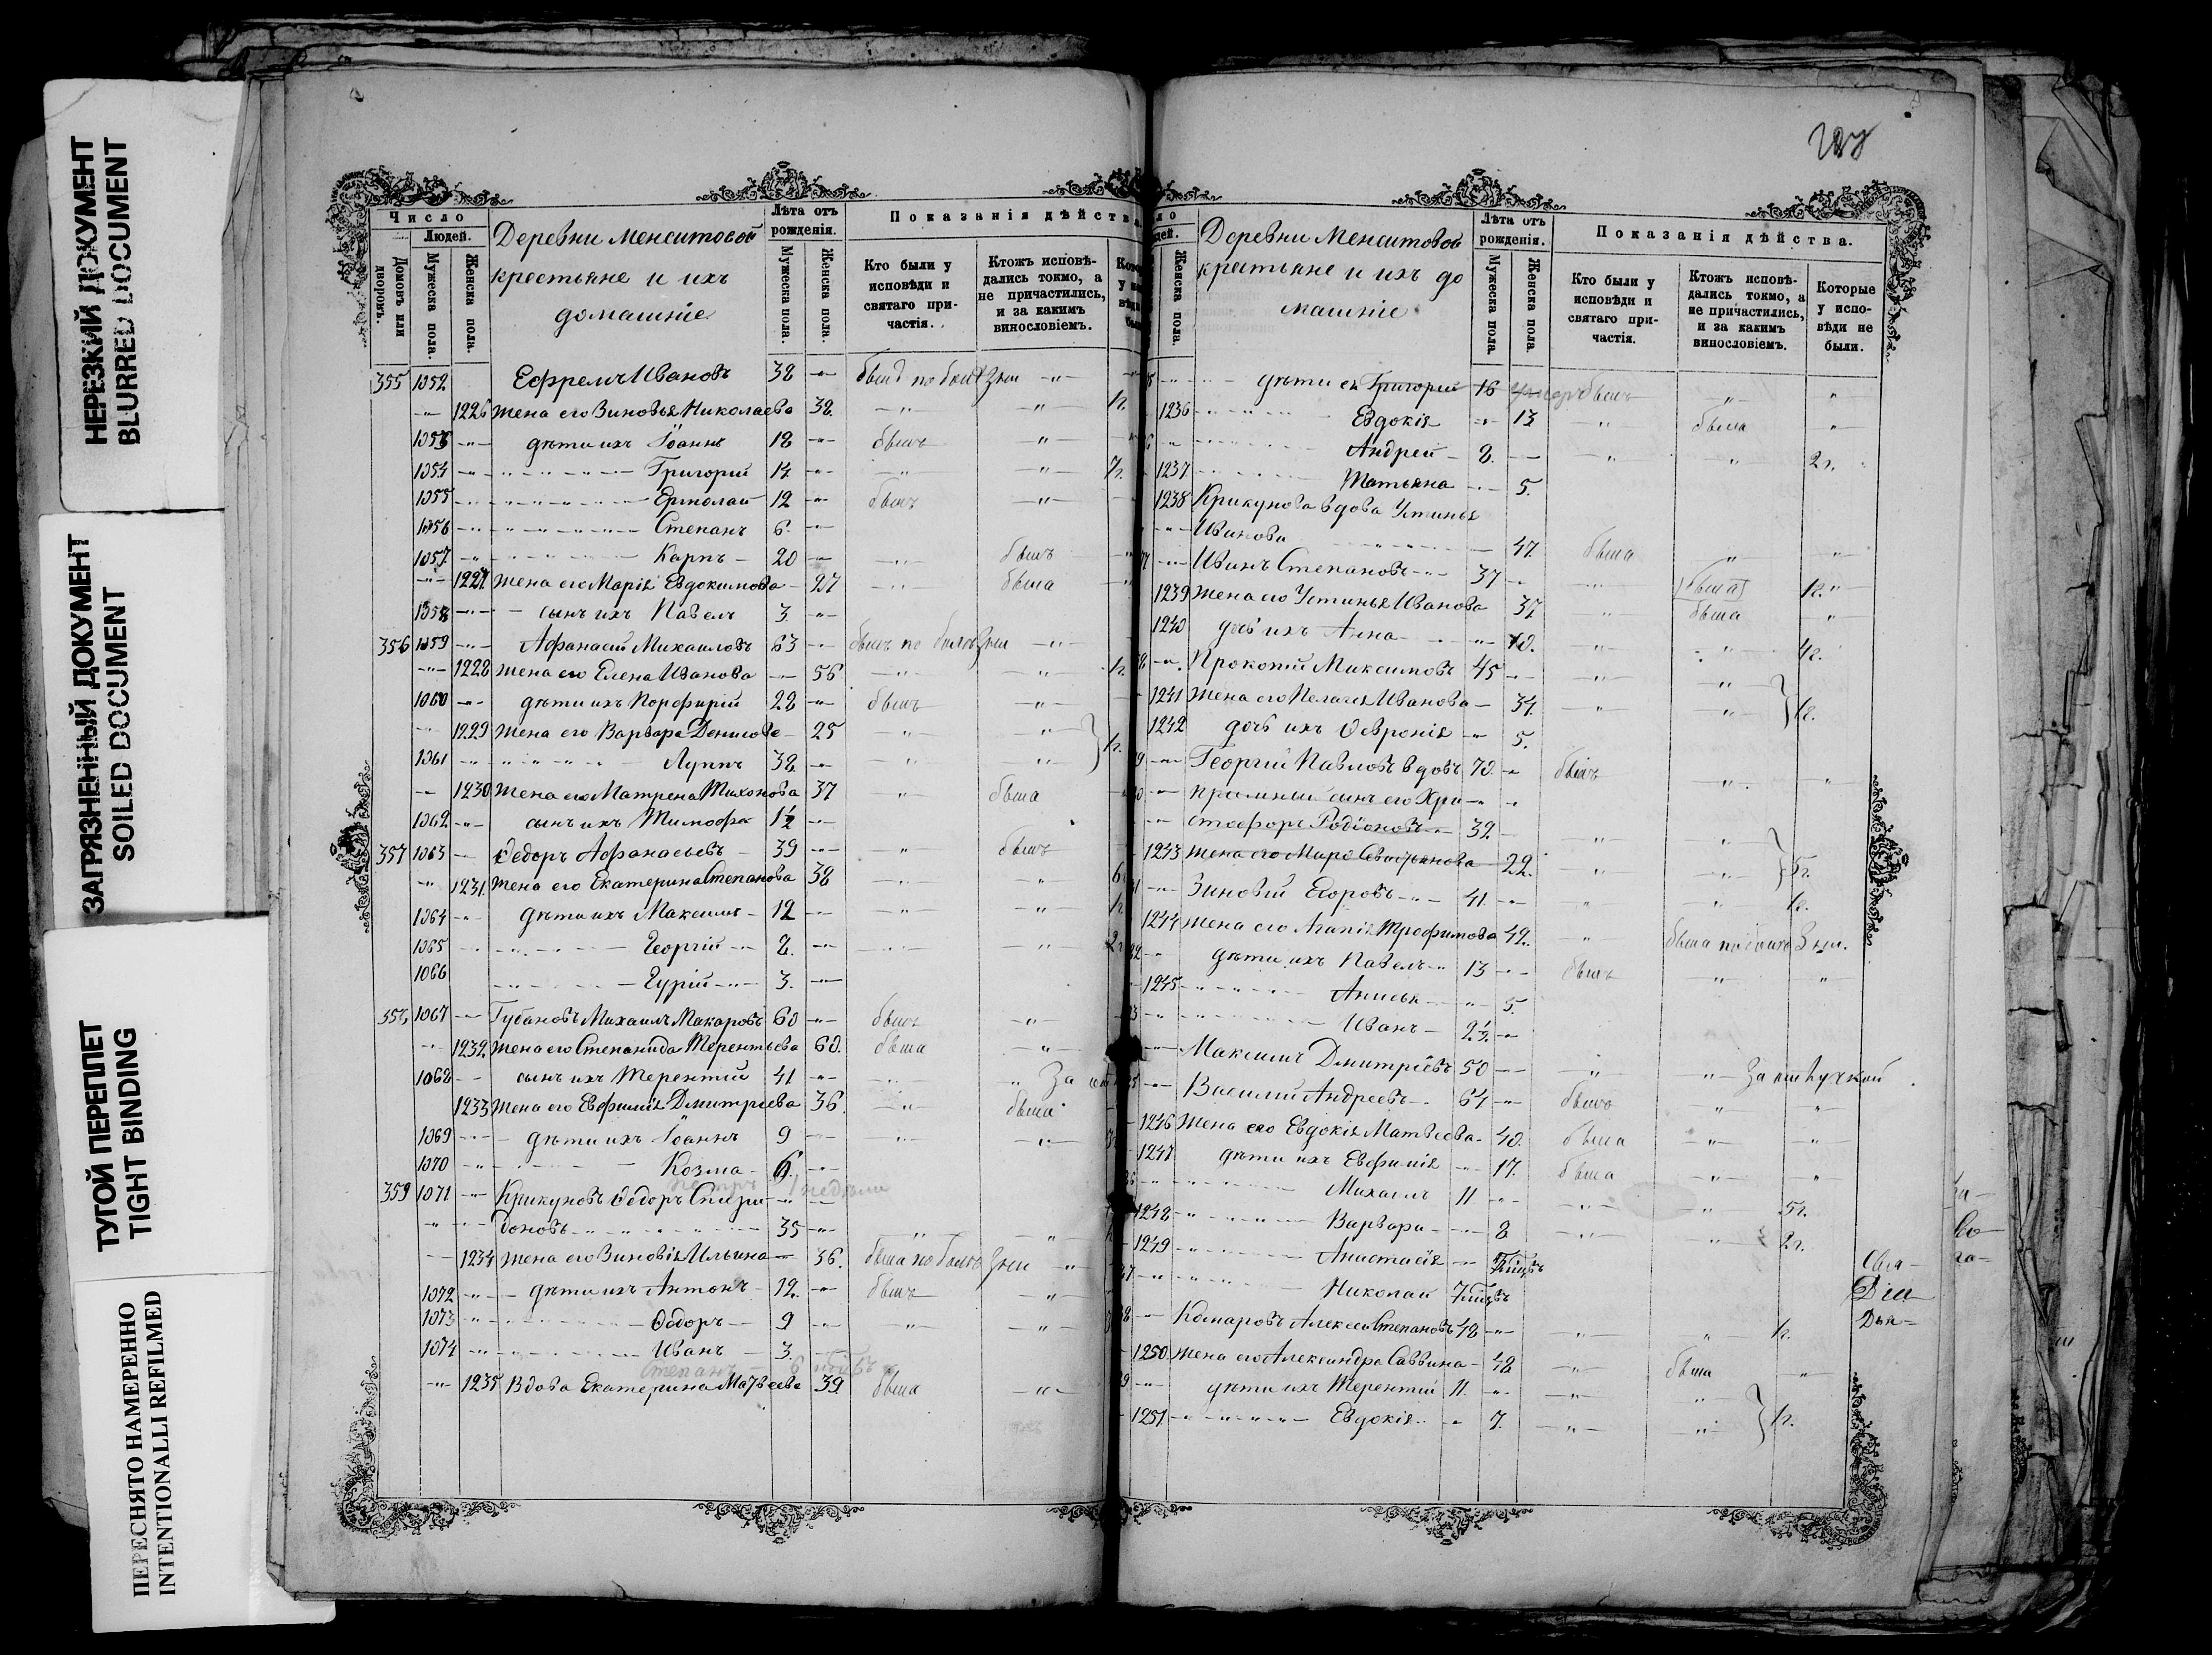 НЕРЕЗКИЙ ДОКУМЕНТ
BLURRED DOCUMENT
ЗАГРЯЗНЕННЫЙ ДОКУМЕНТ
SOILED DOCUMENT
ТУГОЙ ПЕРЕПЛЕТ
TIGHT BINDING
ПЕРЕСНЯТО НАМЕРЕННО
INTENTIONALLI REFILMED
Число
Людей.
Домовъ или дворовъ.
Мужеска пола.
Женска пола.
Деревни Менситовой
крестьяне и ихъ
домашніе.
Лѣта отъ рожденія.
Мужеска пола.
Женска пола.
Показанія дѣйства
Кто были у исповѣди и святаго причастія.
Ктожъ исповѣдались токмо, а не причастились, и за какимъ винословіемъ.
355 1052 Ефремъ Ивановъ 38
1226 жена его Зиновья Николаева 38
1053 дѣти ихъ Іоаннъ 18 былъ
1054 Григорій 14
1055 Ермолай 12 былъ
1056 Степанъ 6
1057 Карпъ 20 былъ
1227 жена его Марія Евдокимова 27 была
1058 сынъ ихъ Павелъ 3
356 1059 Афанасій Михаиловъ 63
1228 жена его Елена Иванова 56
1060 дѣти ихъ Порфирій 28 былъ
1229 жена его Варвара Денисова 25
1061 Луппъ 38
1230 жена его Матрена Тихонова 37 была
1062 сынъ ихъ Тимофей 1½
357 1063 Ѳедоръ Афанасьевъ 39 былъ
1231 жена его Екатерина Степанова 38
1064 дѣти ихъ Максимъ 12
1065 Георгій 8
1066 Гурій 3
358 1067 Губановъ Михаилъ Макаровъ 60 былъ
1232 жена его Степанида Терентьева 60 была
1068 сынъ ихъ Терентій 41
1233 жена его Евфимія Дмитріева 36 была
1069 дѣти ихъ Іоаннъ 9
1070 Козма 6
359 1071 Крикуновъ Ѳедоръ Спири-
доновъ 35
1234 жена его Зиновія Ильина 36
1072 дѣти ихъ Антонъ 12 былъ
1073 Ѳедоръ 9
1074 Иванъ 3
Степанъ 6
1235 Вдова Екатерина Матвеева 39 была
Женска пола.
Деревни Менситовой
крестьяне и ихъ до
машніе
Лѣта отъ рожденія.
Мужеска пола.
Женска пола.
Показанія дѣйства.
Кто были у исповѣди и святаго причастія.
Ктожъ исповѣдались токмо, а не причастились, и за какимъ винословіемъ.
Которые у исповѣди не были.
дѣти ея Григорій 16 былъ
1236 Евдокія 13 была
Андрей 8 2г.
1237 Татьяна 5
1238 Крикунова вдова Устинья
Иванова 47 была
Иванъ Степановъ 37
1239 жена его Устинья Иванова 37 была
1240 дочь ихъ Анна 10
Прокопій Максимовъ 45
1241 жена его Пелагея Иванова 34
1242 дочь ихъ Ѳевронія 5
Георгій Павловъ вдовъ 70 былъ
пріемный сынъ его Хри-
стофоръ Родіоновъ 32
1243 22
Зиновій Егоровъ 41
1244 жена его Агапія Трофимова 42
дѣти ихъ Павелъ 13 былъ
1245 Анисья 5
Иванъ 2½
Максимъ Дмитріевъ 50
Василій Андреевъ 64 былъ
1246 жена его Евдокія Матвеева 40 была
1247 дѣти ихъ Евфимія 17 была
Михаилъ 11 5г.
1248 Варвара 8 2г.
1249 Анастасія
Николай
Комаровъ Алексей Степановъ 48
1250 жена его Александра Саввина 48 была
дѣти ихъ Терентій 11
1251 Евдокія 7